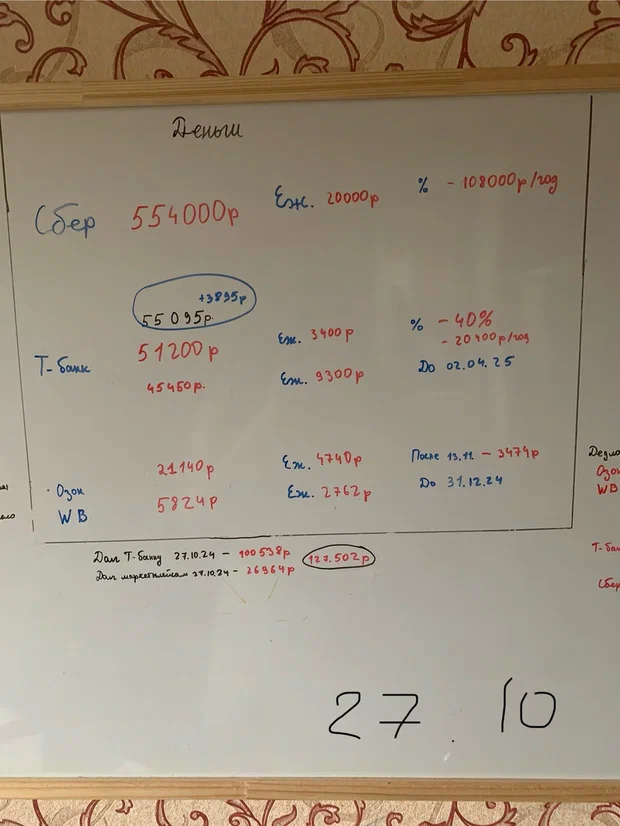 Деньги
Сбер 554000р Еж. 20000р % - 108000р/год
+3895р
55095р.
Т-банк 51200р Еж. 3400р % - 40%
- 20400р/год
45450р. Еж. 9300р До 02.04.25
Озон 21140р Еж. 4740р После 13.11. - 3474р
WB 5824р Еж. 2762р До 31.12.24
Долг Т-банку 27.10.24 - 100538р 127.502р
Долг маркетплейсам 27.10.24 - 26964р
Озон
WB
27.10